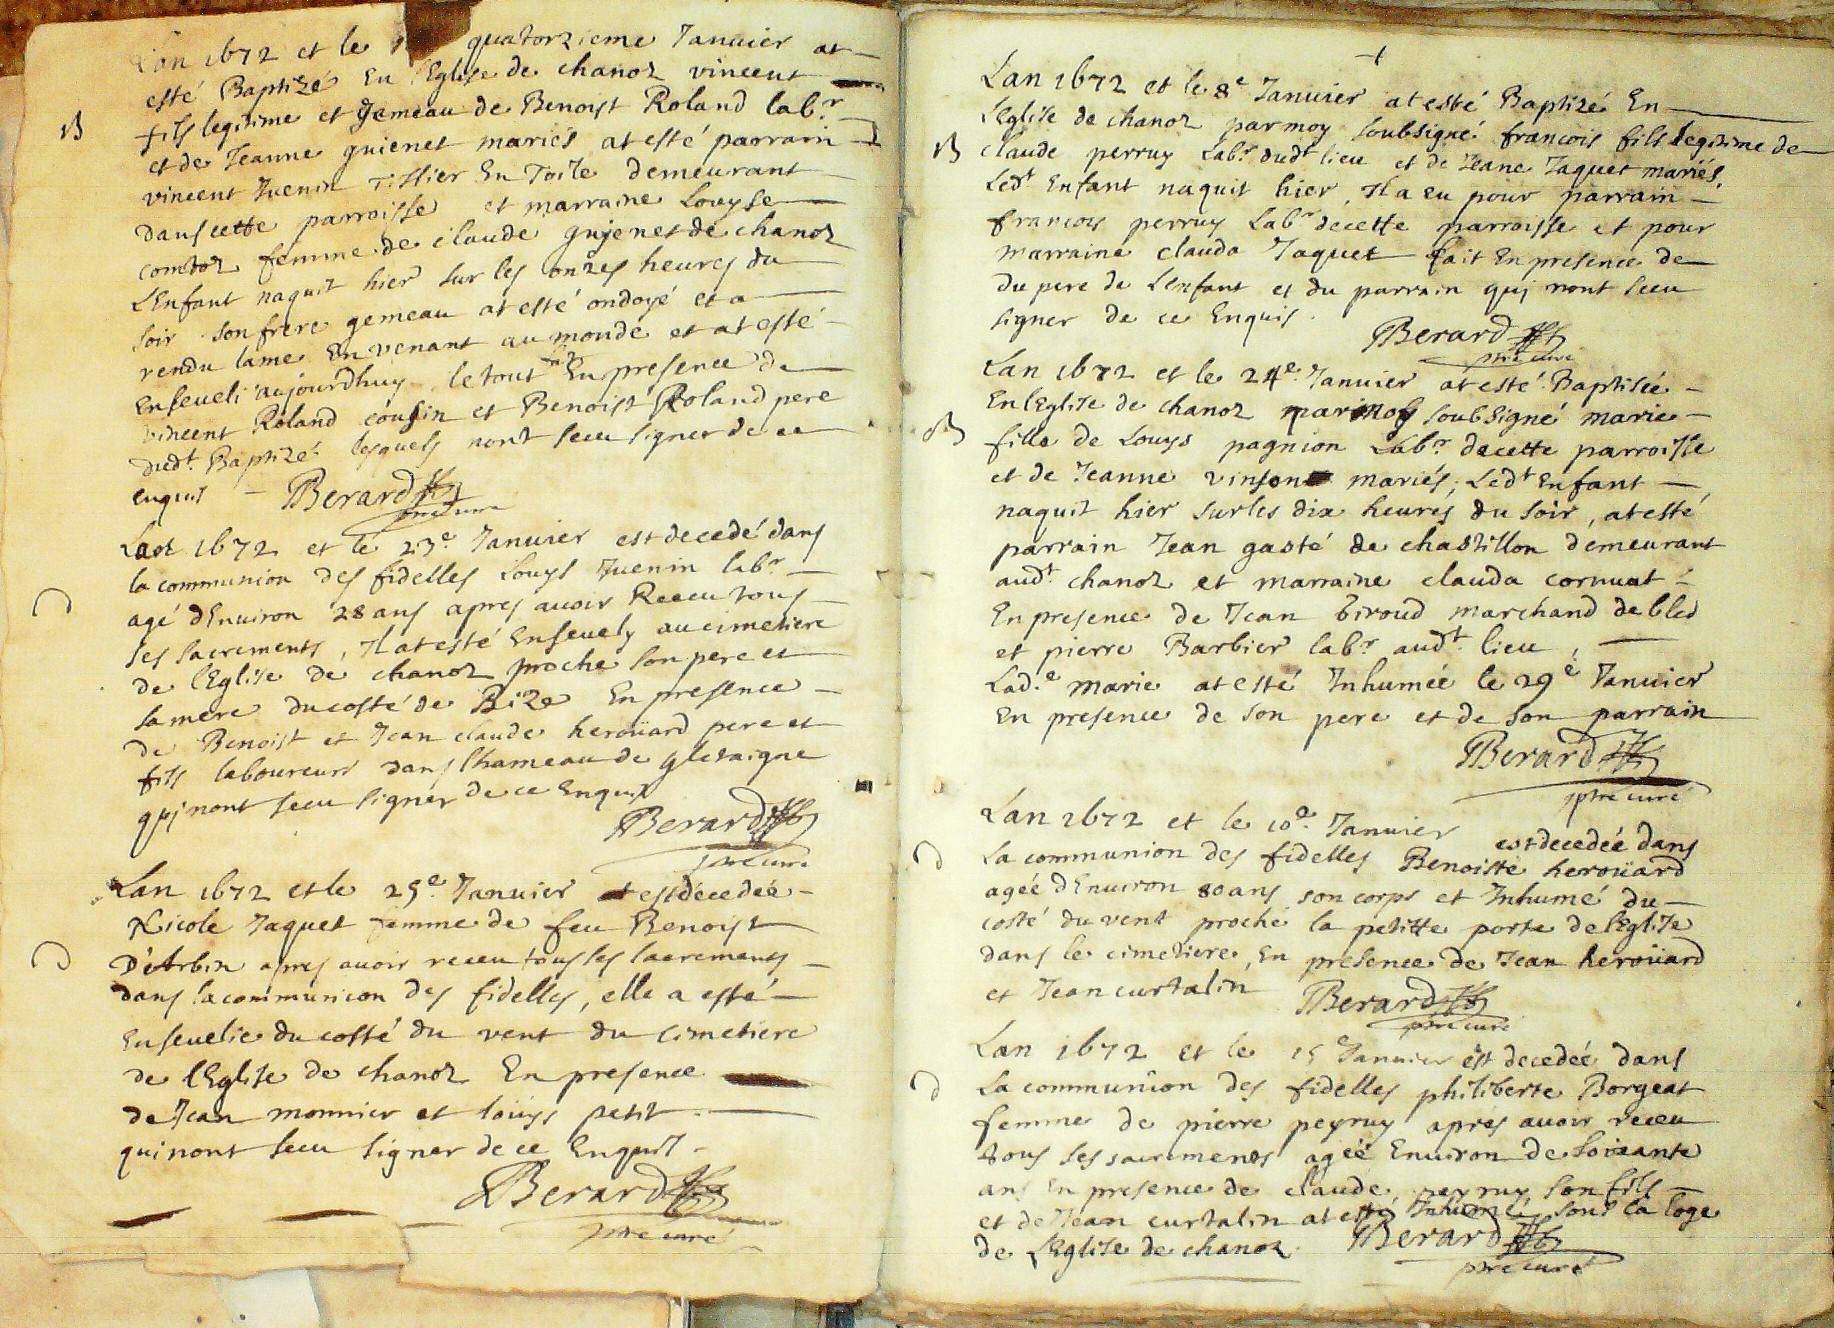 Lan 1672 et le quatorzieme Januier at
esté Baptizé En lEglise de chanoz vincent
B fils legitime et gemeau de Benoist Roland labr
et de Jeanne guienet mariés at esté parrain
vincent Juenin Tissier En Toile demeurant
dans cette parroisse et marraine Louyse
comtoz femme de claude gujenet de chanoz
LEnfant naquit hier sur les onzes heures du
soir son frere gemeau at esté ondoyé et a
rendu lame En venant au monde et at esté
Enseueli aujourdhuy le tout fait En presence de
vincent Roland cousin et Benoist Roland pere
dudt Baptizé lesquels nont sceu signer de ce
enquis Berard
ptre curé
Lan 1672 et le 23e Januier est decedé dans
la communion des fidelles Louys Juenin labr
agé dEnuiron 28 ans apres auoir Receu tous
ses sacrements, Il at esté Enseuely au cimetiere
de lEglise de chanoz proche son pere et
sa mere du costé de Bize En presence
de Benoist et Jean claude heroüard pere et
fils laboureurs dans lhameau de glesaigne
quj nont sceu signer de ce Enquis
Berard
ptre curé
Lan 1672 et le 25e Januier est decedée
Nicole Jaquet femme de feu Benoist
D'Arbin apres auoir receu tous les sacrements
dans la communion des fidelles, elle a esté
Enseuelie du costé du vent du cimetiere
de lEglise de chanoz En presence
de Jean monnier et loüys petit
qui nont sceu signer de ce Enquis
Berard
ptre curé
Lan 1672 et le 8e Januier at esté Baptizé En
LEglise de chanoz par moy soubsigné francois fils legitime de
B claude perruy Labr dudt lieu et de Jeane Jaquet mariés,
Ledt Enfant naquit hier, Il a eu pour parrain
francois perruy Labr de cette parroisse et pour
marraine clauda Jaquet fait En presence de
du pere de Lenfant et du parrain quj nont sceu
signer de ce Enquis.
Berard
ptre curé
Lan 1672 et le 24e Januier at esté Baptisée
En lEglise de chanoz par moy soubsigné marie
B fille de Louys pagnion Labr de cette parroisse
et de Jeanne vinson mariés; Ledt Enfant
naquit hier sur les dix heures du soir, at esté
parrain Jean gasté de chastillon demeurant
audt chanoz et marraine clauda cornuat
En presence de Jean Tiroud marchand de bled
et pierre Barbier labr audt lieu,
Lade marie at esté Inhumée le 29e Januier
En presence de son pere et de son parrain
Berard
ptre curé
Lan 1672 et le 10e Januier est decedée dans
La communion des fidelles Benoiste heroüard
agée dEnuiron 80 ans son corps et Inhumé du
costé du vent proche la petitte porte de lEglise
dans le cimetiere, En presence de Jean heroüard
et Jean curtalin Berard
ptre curé
Lan 1672 et le 15 Januier est decedée dans
La communion des fidelles philiberte Borgeat
femme de pierre peyruy apres auoir receu
tous ses sacrements agée Enuiron de soixante
ans En presence de claude peyruy son fils
et de Jean curtalin at esté Inhumé sous la loge
de LEglise de chanoz. Berard
ptre curé